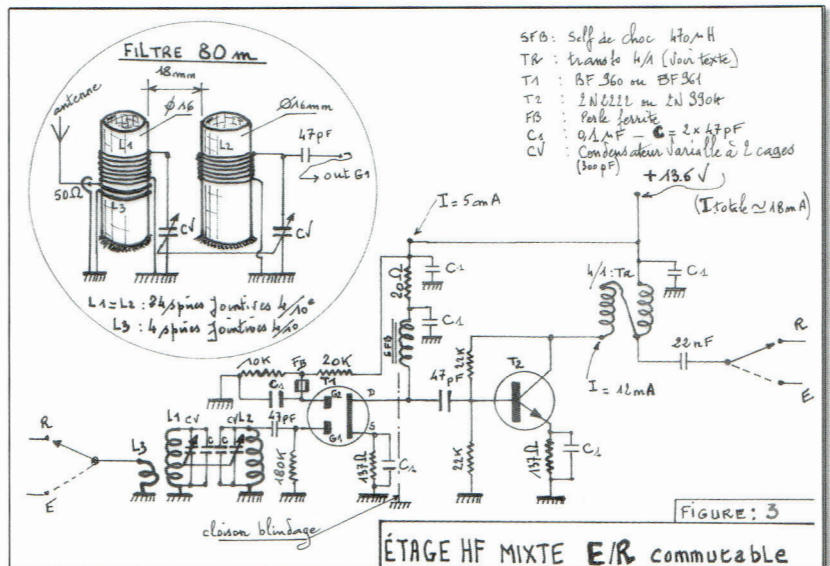 FILTRE 80 m
18mm
antenne
Ø16
Ø16mm
L1
L2
47pF
out G1
50Ω
L3
CV
CV
L1=L2 : 34 spires jointives 4/10e
L3 : 4 spires jointives 4/10
SFB : Self de choc 470µH
TR : transfo 4/1 (voir texte)
T1 : BF 960 ou BF 961
T2 : 2N2222 ou 2N3904
FB : Perle ferrite
C1 : 0,1µF – C = 2 x 47pF
CV : Condensateur Variable à 2 cages
(300pF)
+13.6 V
(I totale ≃ 18mA)
I = 5mA
20Ω
C1
C1
SFB
4/1 : TR
C1
22nF
R
E
I = 12mA
10K
FB
20K
C1
T1
G2
D
G1
S
47pF
22K
T2
22K
137Ω
C1
R
E
L3
L1
CV
C
C
CV
L2
47pF
180K
137Ω
C1
cloison blindage
FIGURE : 3
ÉTAGE HF MIXTE E/R commutable